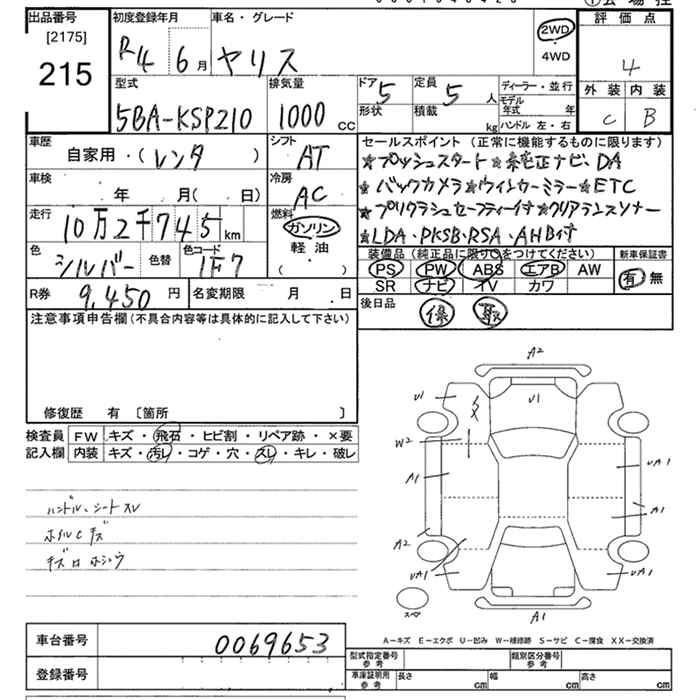 出品番号 初度登録年月 車名・グレード 2WD 評価点
[2175]
215 R4 6月 ヤリス 4WD 4
型式 排気量 ドア 5 定員 5人 ディーラー・並行 外装 内装
5BA-KSP210 1000 CC 形状 積載 kg モデル年式 年 C B
ハンドル 左・右
車歴 シフト セールスポイント(正常に機能するものに限ります)
自家用・(レンタ ) AT ★プッシュスタート★純正ナビ、DA
車検 年 月( 日) 冷房 AC ★バックカメラ★ウインカーミラー★ETC
走行 10万2千745km 燃料 ガソリン ★プリクラッシュセーフティー付★クリアランスソナー
軽・油 ★LDA・PKSB・RSA・AHB付
色 シルバー 色替 色コード 1F7 ( ・ ) 装備品(純正品に限り○をつけてください) 新車保証書
PS PW ABS エアB AW 有・無
SR ナビ TV カワ
R券 9,450円 名変期限 月 日 後日品 保 取
注意事項申告欄(不具合内容等は具体的に記入して下さい)
修復歴 有 〔箇所 〕
検査員 FW キズ・飛石・ヒビ割・リペア跡・×要
記入欄 内装 キズ・汚レ・コゲ・穴・スレ・キレ・破レ
ハンドル、シートスレ
ホイルCキズ
キズロホシュウ
A2
U1 U1
W2
A1 UA1
A1
A2
UA1 UA1
スペ A1
A-キズ E-エクボ U-凹み W-補修跡 S-サビ C-腐食 XX-交換済
車台番号 0069653 型式指定番号 参考 類別区分番号 参考
登録番号 車庫証明用 参考 長さ cm 幅 cm 高さ cm